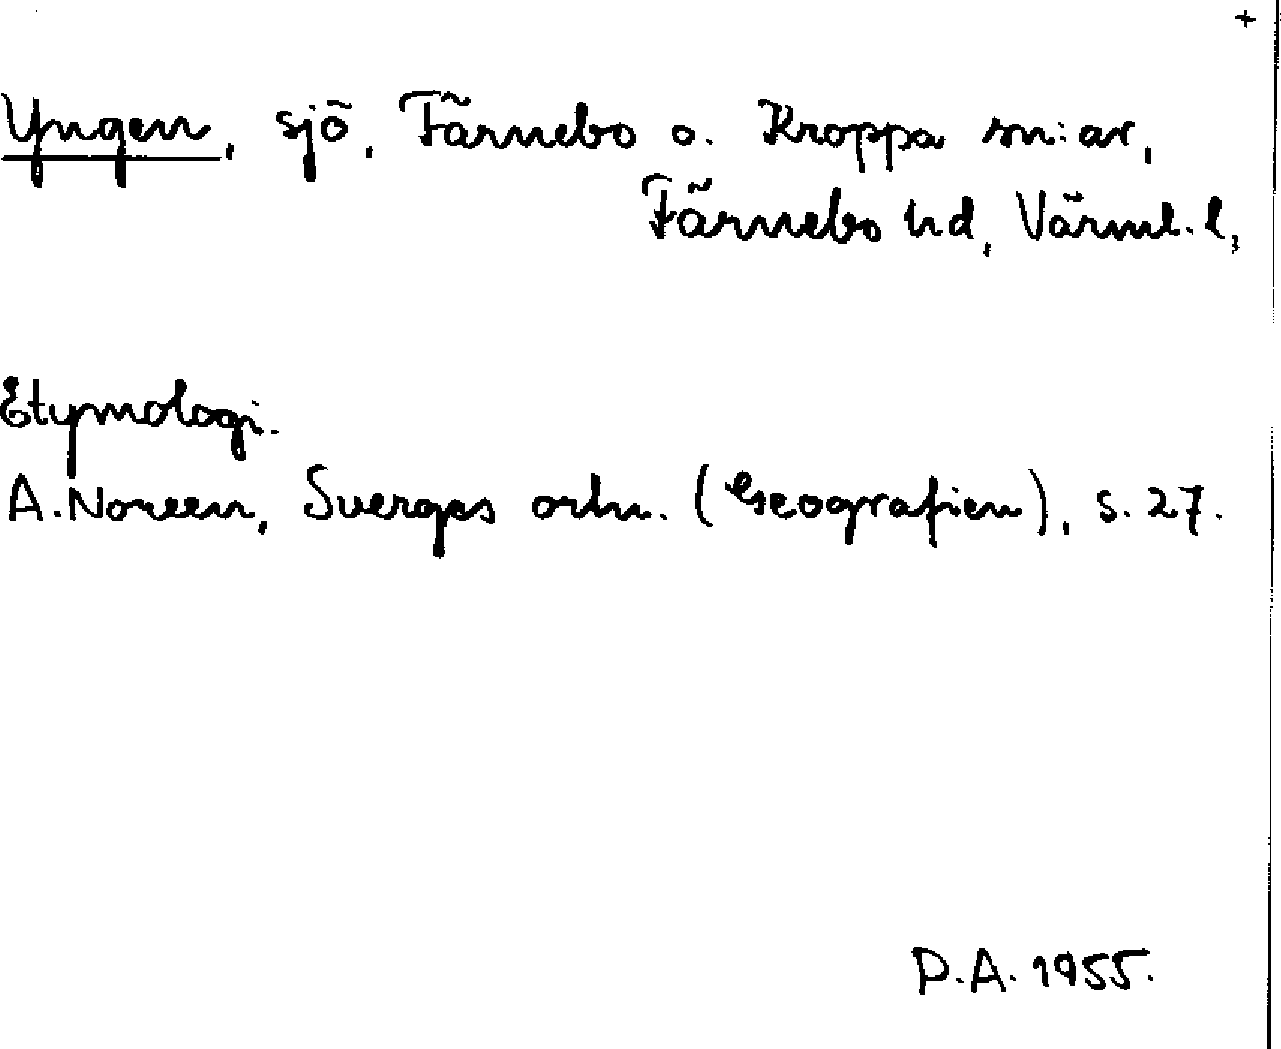 +
Yngen, sjö, Färnebo o. Kroppa sn:ar,
Färnebo hd, Värml. l,
Etymologi.
A. Noreen, Sverges ortn. (Geografien), s. 27.
P.A. 1955.